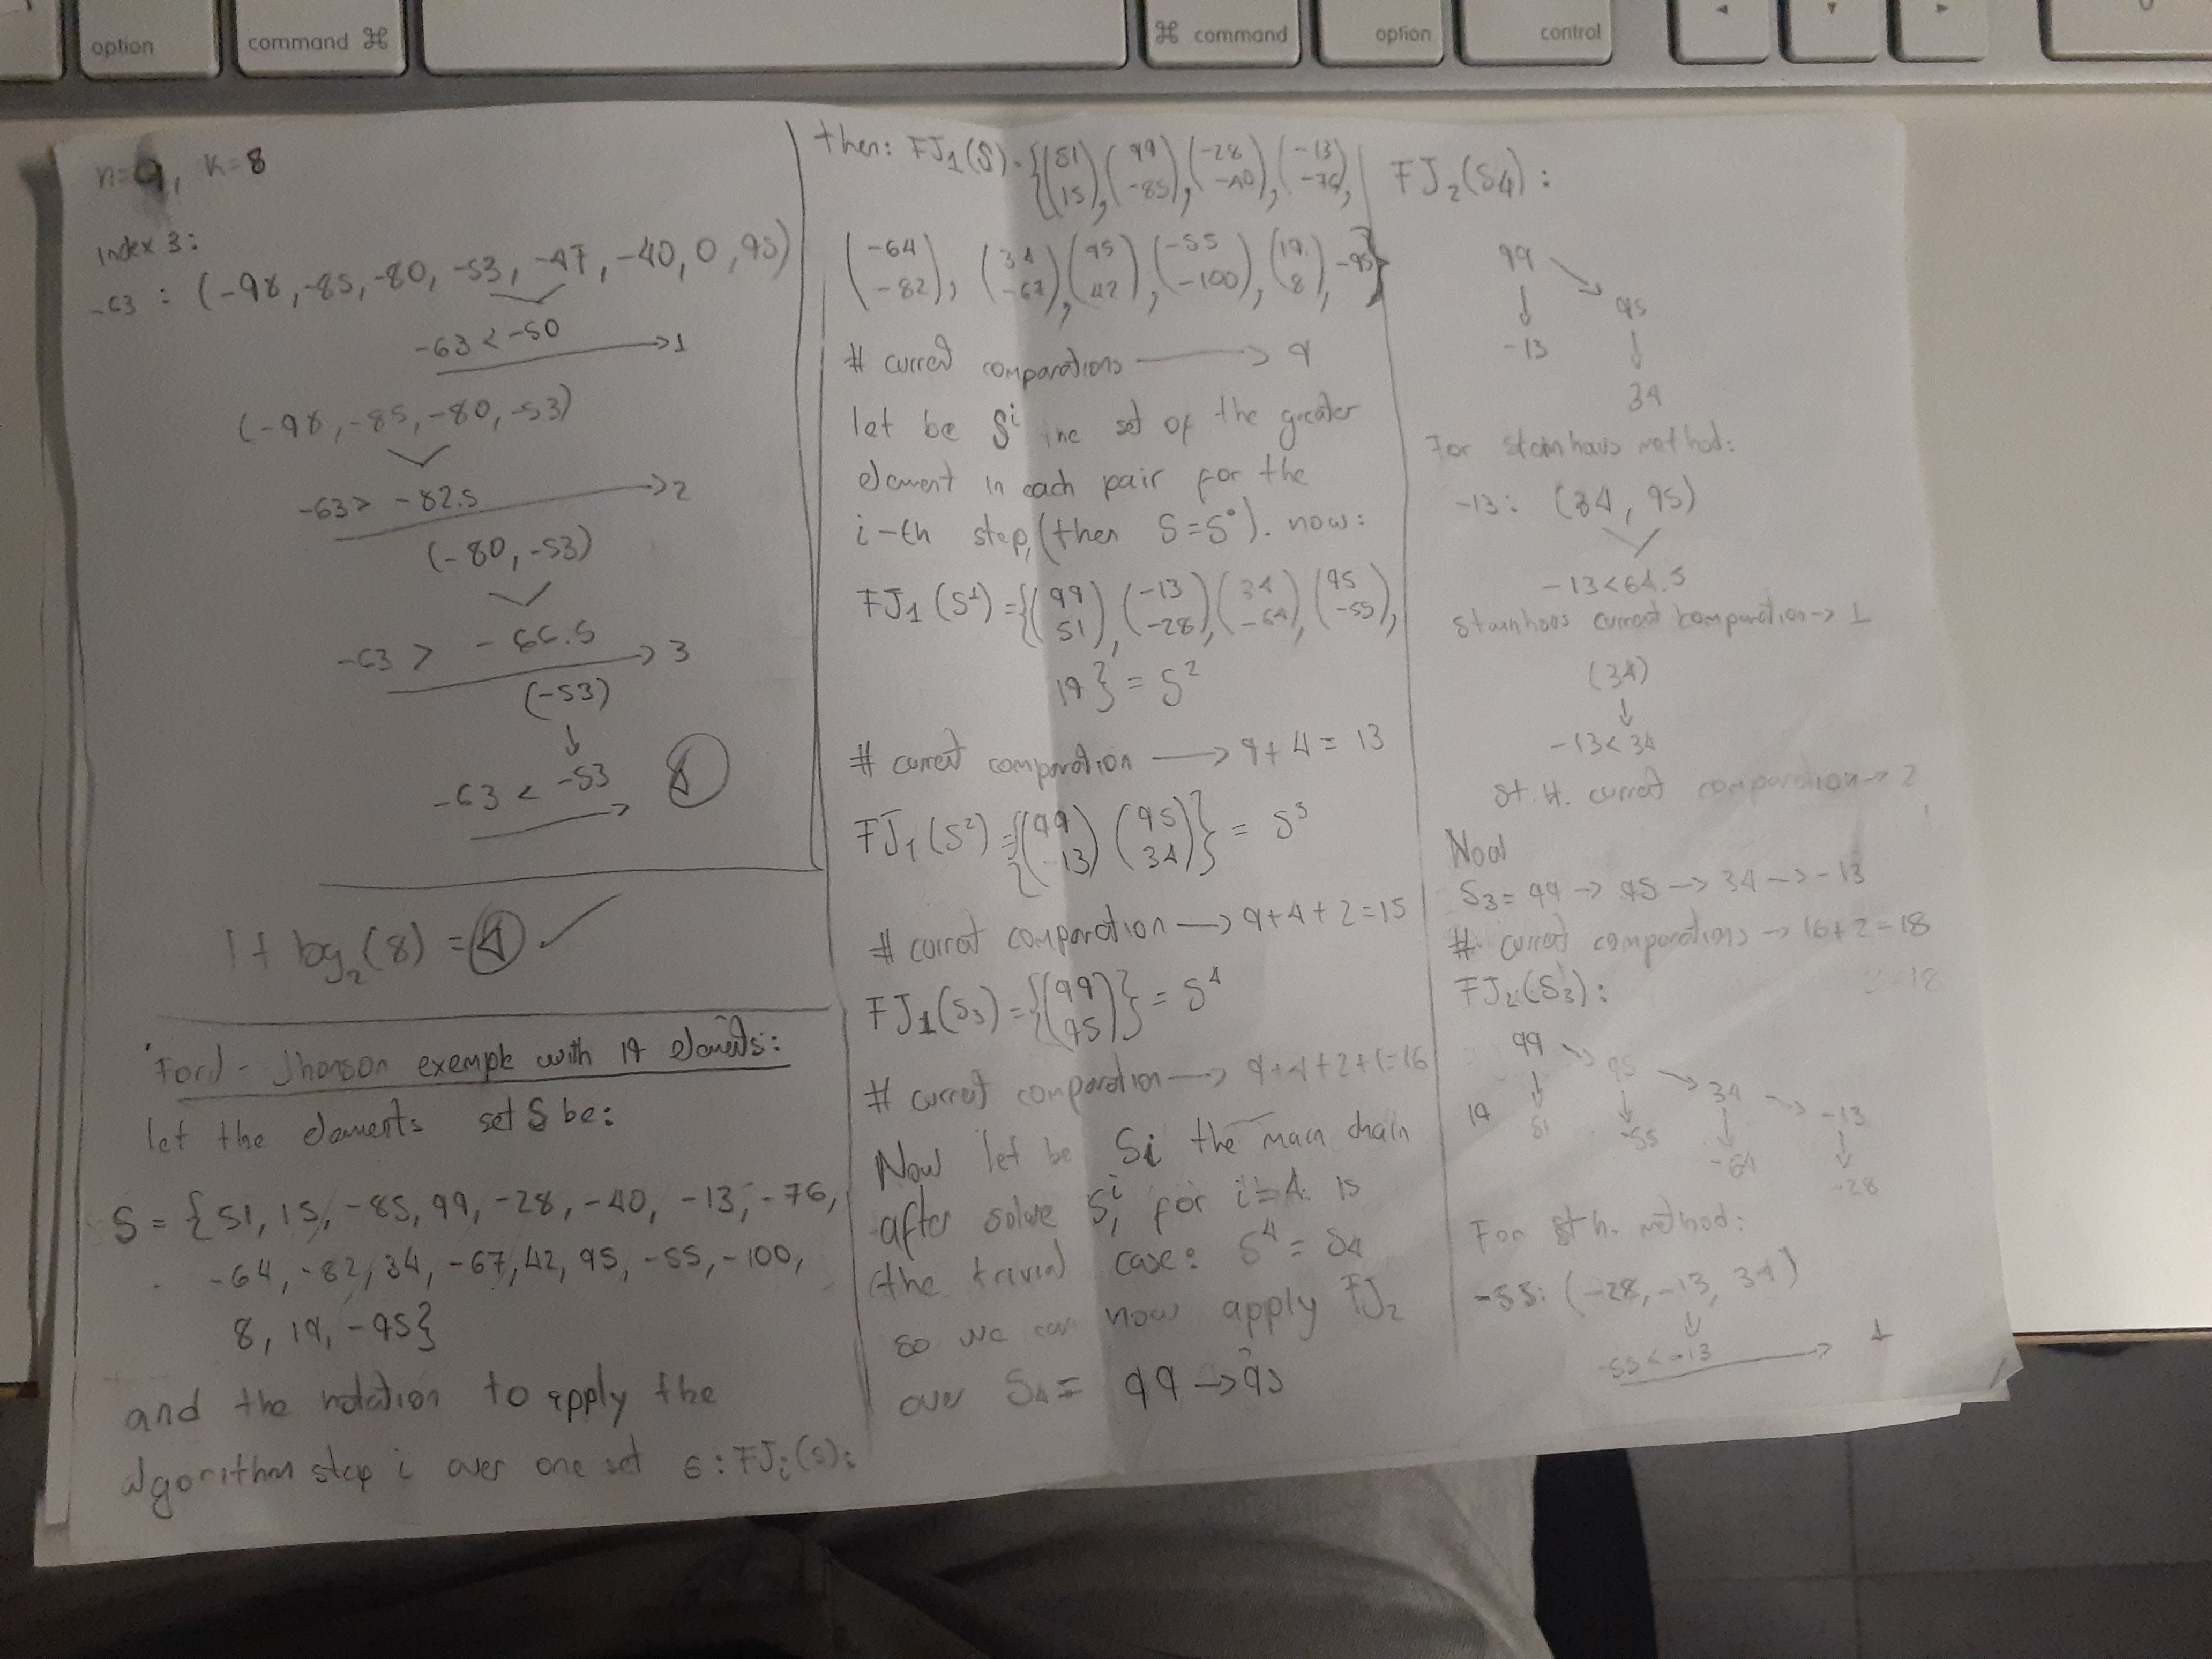 option
command ⌘
⌘ command
option
control
n=9, k=8
Index 3:
-63 : (-98, -85, -80, -53, -47, -40, 0, 95)
-63 < -50 → 1
(-98, -85, -80, -53)
-63 > -82.5 → 2
(-80, -53)
-63 > -66.5 → 3
(-53)
↓
-63 < -53 → 4
1 + log₂(8) = 4 ✓
Ford - Jhonson exemple with 19 elements:
let the elements set S be:
S = {51, 15, -85, 99, -28, -40, -13, -76,
-64, -82, 34, -67, 42, 95, -55, -100,
8, 19, -95}
and the notation to apply the
algorithm step i over one set s : FJi(s):
then: FJ₁(S) = {(51 15), (99 -85), (-28 -40), (-13 -76),
(-64 -82), (34 -67), (95 42), (-55 -100), (19 8), -95}
# current comparations → 9
let be Sⁱ the set of the greater
element in each pair for the
i-th step, (then S=S⁰). now:
FJ₁(S¹) = {(99 51), (-13 -28), (34 -64), (95 -55),
19} = S²
# current comparation → 9+4 = 13
FJ₁(S²) = {(99 -13) (95 34)} = S³
# current comparation → 9+4+2=15
FJ₁(S₃) = {(99 95)} = S⁴
# current comparation → 9+4+2+1=16
Now let be Si the main chain
after solve Sⁱ, for i=4 is
the trivial case: S⁴ = S₄
so we can now apply FJ₂
over S₄ = 99 → 95
FJ₂(S₄) :
99 → 95
↓ ↓
-13 34
For stainhaus method:
-13: (34, 95)
-13<64.5
Stainhaus current comparation → 1
(34)
↓
-13<34
St.H. current comparation → 2
Now
S₃ = 99 → 95 → 34 → -13
# current comparations → 16+2=18
FJ₂(S₃):
99 → 95 → 34 → -13
↓ ↓ ↓ ↓
19 51 -55 -64 -28
For St h. method:
-55: (-28, -13, 34)
↓
-13 → 1